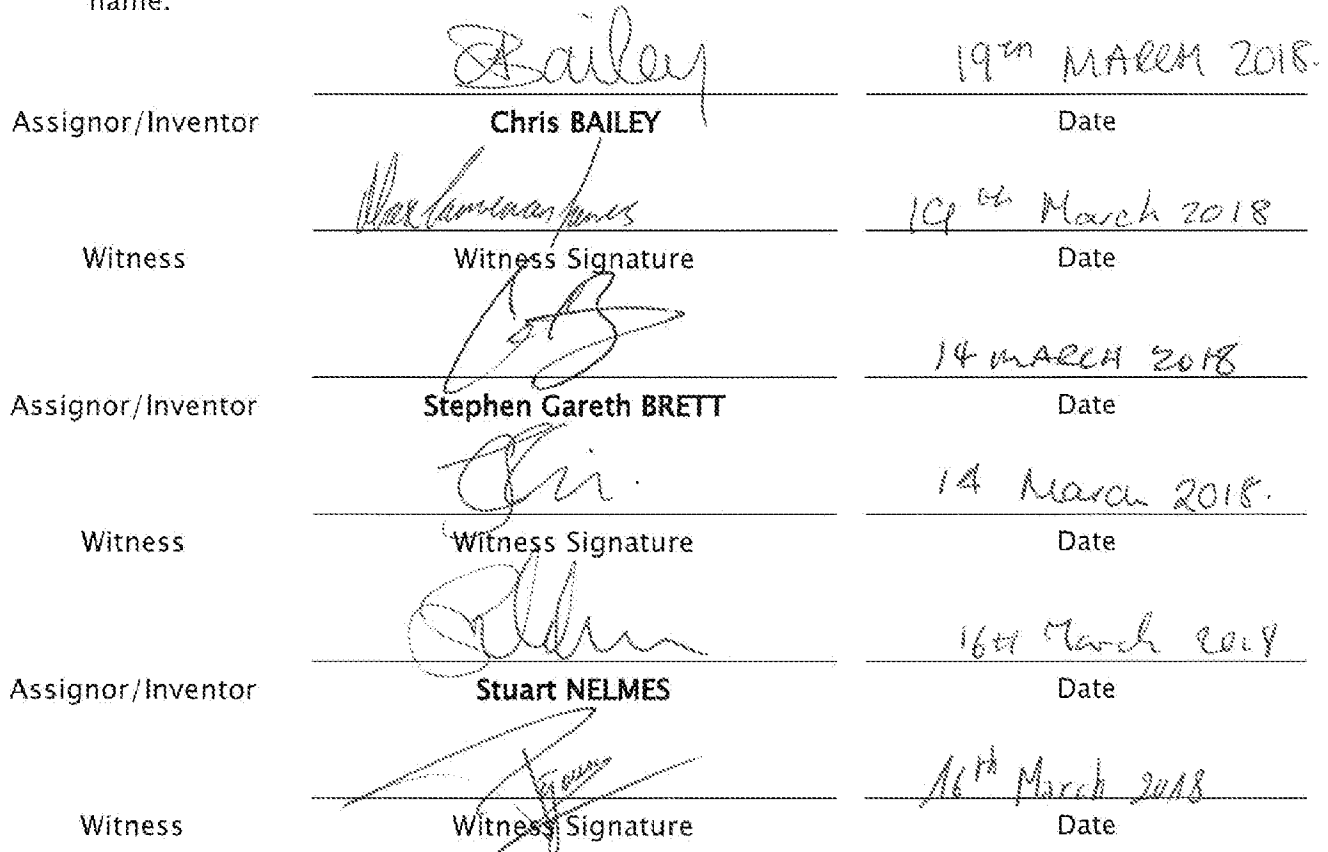 name.
Bailey 19th MARCH 2018.
Assignor/Inventor Chris BAILEY Date
19th March 2018
Witness Witness Signature Date
14 MARCH 2018
Assignor/Inventor Stephen Gareth BRETT Date
14 March 2018.
Witness Witness Signature Date
16TH March 2018
Assignor/Inventor Stuart NELMES Date
16th March 2018
Witness Witness Signature Date